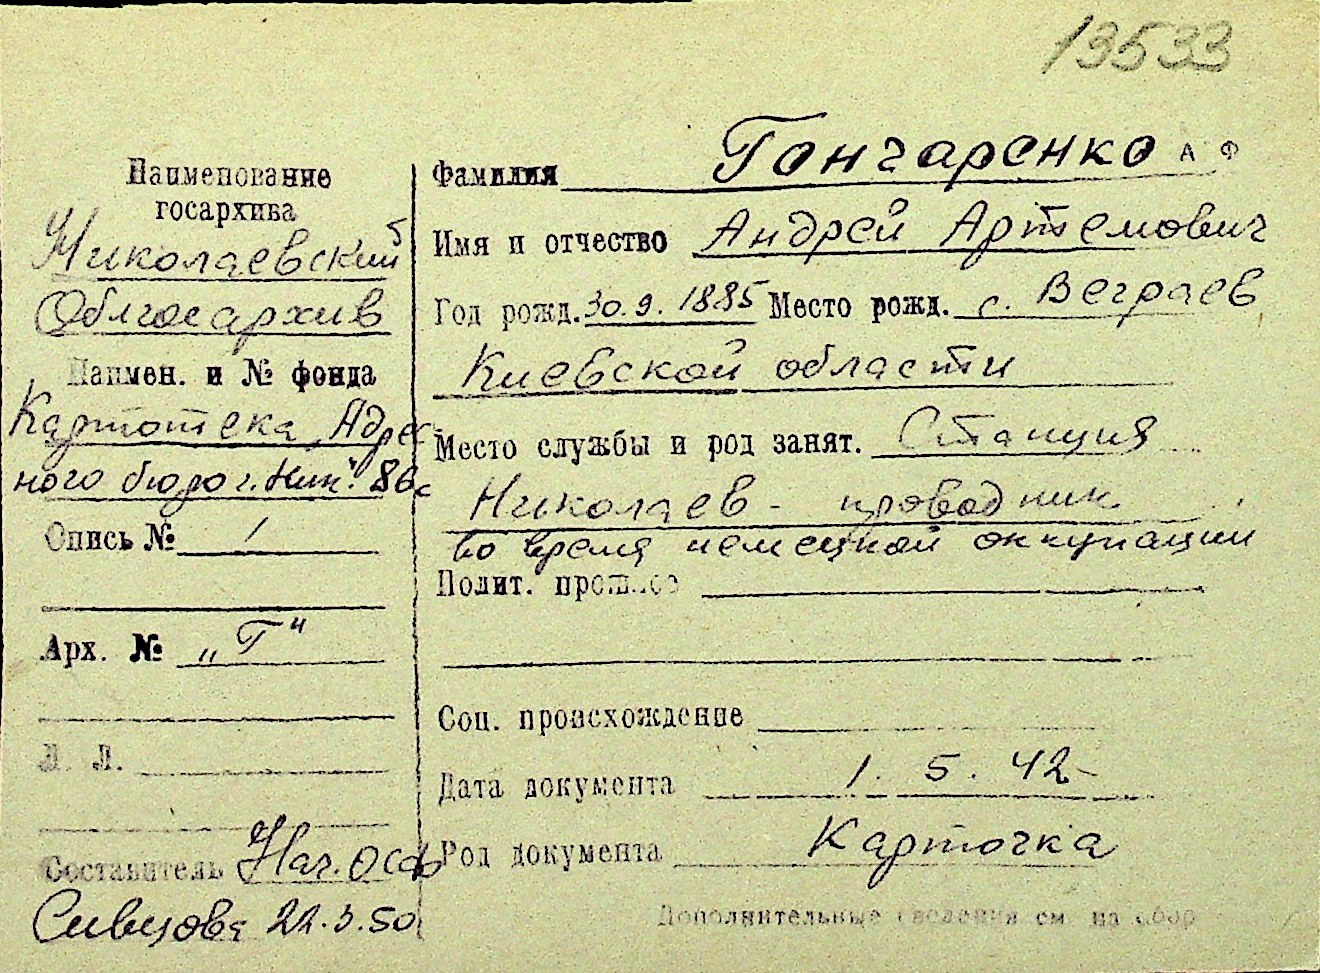 13533
Наименование
госархива
Николаевский
Облгосархив
Наимен. и № фонда
Картотека Адрес
ного бюро г. Ник. 86с
Опись № 1
Арх. № „Г"
Л. Л.
Составитель Нач. ОСФ
Сивцова 22.3.50
Фамилия Гончаренко А Ф
Имя и отчество Андрей Артемович
Год рожд. 30.9.1885 Место рожд. с. Веграев
Киевской области
Место службы и род занят. Станция
Николаев - проводник
во время немецкой оккупации
Полит. прошлое
Соц. происхождение
Дата документа 1. 5. 42-
Род документа Карточка
Дополнительные сведения см. на обор